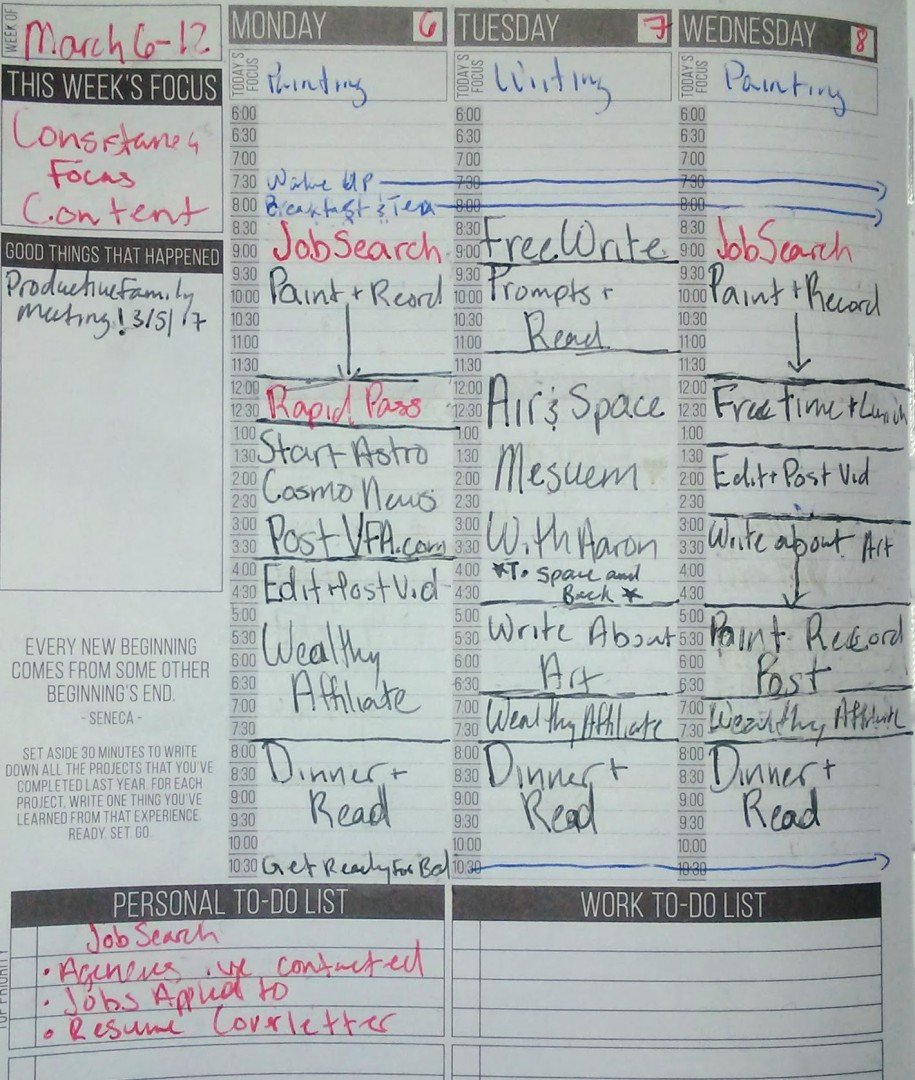 WEEK OF
March 6-12
THIS WEEK'S FOCUS
Consistancy
Focus
Content
GOOD THINGS THAT HAPPENED
Productive Family
Meeting! 3/5/17
EVERY NEW BEGINNING
COMES FROM SOME OTHER
BEGINNING'S END.
- SENECA -
SET ASIDE 30 MINUTES TO WRITE
DOWN ALL THE PROJECTS THAT YOU'VE
COMPLETED LAST YEAR. FOR EACH
PROJECT, WRITE ONE THING YOU'VE
LEARNED FROM THAT EXPERIENCE.
READY. SET. GO.
MONDAY 6
TODAY'S FOCUS
Painting
6:00
6:30
7:00
7:30 Wake UP
8:00 Breakfast & Tea
8:30
9:00 JobSearch
9:30
10:00 Paint + Record
10:30
11:00
11:30
12:00
12:30 Rapid Pass
1:00
1:30 Start Astro
2:00
2:30 Cosmo News
3:00
3:30 Post VFA.com
4:00
4:30 Edit + Post Vid
5:00
5:30 Wealthy
6:00
6:30 Affiliate
7:00
7:30
8:00
8:30 Dinner +
9:00 Read
9:30
10:00
10:30 Get Ready For Bed
TUESDAY 7
TODAY'S FOCUS
Writing
6:00
6:30
7:00
7:30
8:00
8:30
9:00 FreeWrite
9:30
10:00 Prompts +
10:30
11:00 Read
11:30
12:00
12:30 Air & Space
1:00
1:30
2:00 Mesuem
2:30
3:00
3:30 With Aaron
4:00 *To Space and
4:30 Back *
5:00
5:30 Write About
6:00
6:30 Art
7:00
7:30 Wealthy Affiliate
8:00
8:30 Dinner +
9:00 Read
9:30
10:00
10:30
WEDNESDAY 8
TODAY'S FOCUS
Painting
6:00
6:30
7:00
7:30
8:00
8:30
9:00 JobSearch
9:30
10:00 Paint + Record
10:30
11:00
11:30
12:00
12:30 Free time + Lunch
1:00
1:30
2:00 Edit + Post Vid
2:30
3:00
3:30 Write about Art
4:00
4:30
5:00
5:30 Paint Record
6:00
6:30 Post
7:00
7:30 Wealthy Affiliate
8:00
8:30 Dinner +
9:00 Read
9:30
10:00
10:30
PERSONAL TO-DO LIST
TOP PRIORITY
JobSearch
• Agencies ive contacted
• Jobs Applied to
• Resume Coverletter
WORK TO-DO LIST